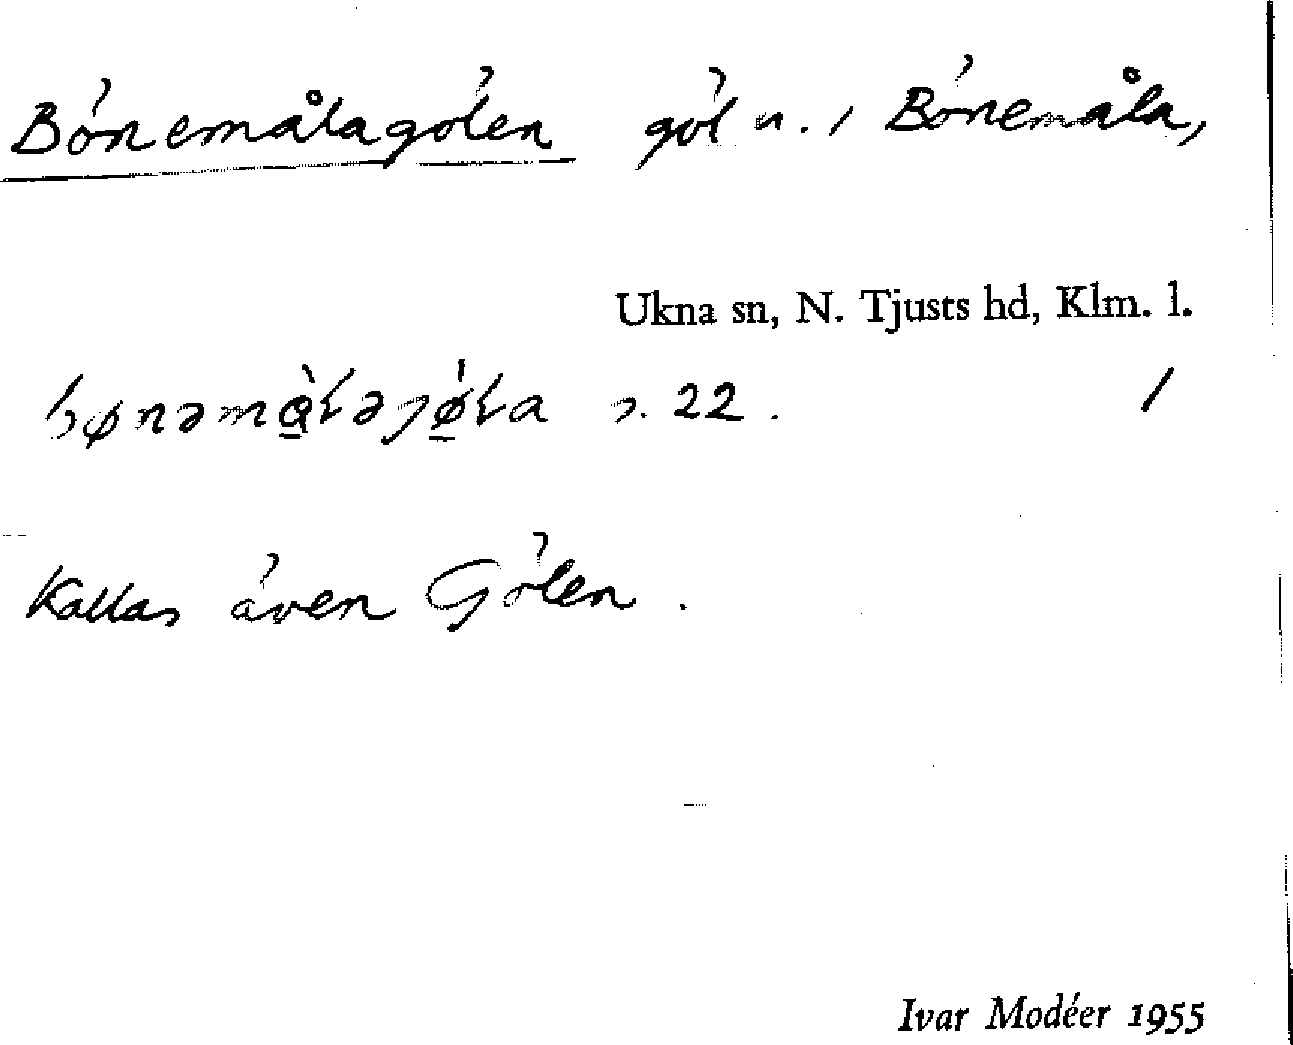 Bönemålagölen göl n. i Bönemåla,
Ukna sn, N. Tjusts hd, Klm. l.
s. 22. /
Kallas även Gölen.
Ivar Modéer 1955